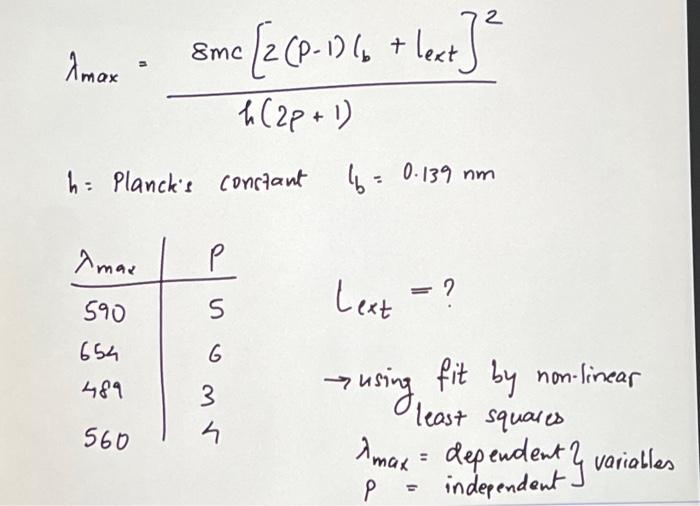 λmax = 8mc [2(P-1)lb + Lext]²
h(2p + 1)
h = Planck's constant lb = 0.139 nm
λmax P
590 5
654 6
489 3
560 4
Lext = ?
→ using fit by non-linear
least squares
λmax = dependent } variables
P = independent